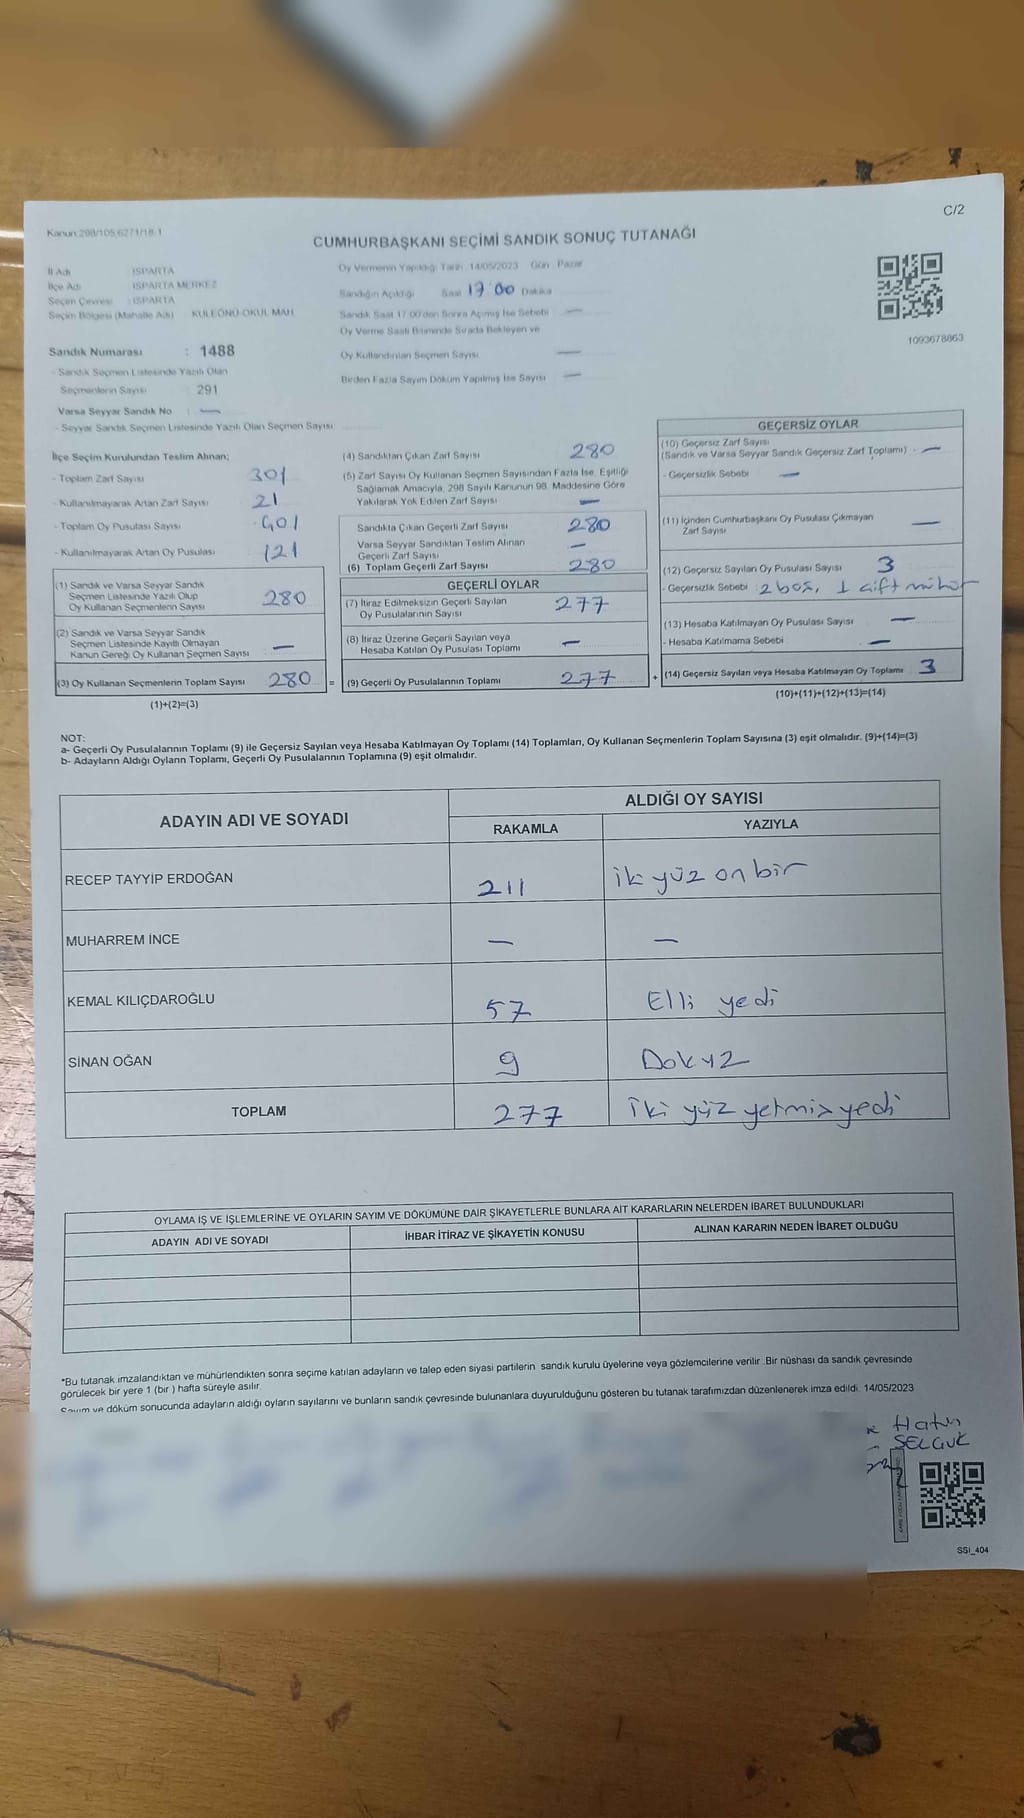 C/2
Kanun:298/105,6271/18-1
CUMHURBAŞKANI SEÇİMİ SANDIK SONUÇ TUTANAĞI
İl Adı ISPARTA
İlçe Adı ISPARTA MERKEZ
Seçim Çevresi : ISPARTA
Seçim Bölgesi (Mahalle Adı) KULEÖNÜ-OKUL MAH
Sandık Numarası : 1488
- Sandık Seçmen Listesinde Yazılı Olan
Seçmenlerin Sayısı : 291
Varsa Seyyar Sandık No : —
- Seyyar Sandık Seçmen Listesinde Yazılı Olan Seçmen Sayısı
Oy Vermenin Yapıldığı Tarih 14/05/2023 Gün Pazar
Sandığın Açıldığı Saat 17 00 Dakika
Sandık Saat 17.00'den Sonra Açılmış İse Sebebi —
Oy Verme Saati Bitiminde Sırada Bekleyen ve
Oy Kullandırılan Seçmen Sayısı —
Birden Fazla Sayım Döküm Yapılmış İse Sayısı —
1093678863
İlçe Seçim Kurulundan Teslim Alınan;
- Toplam Zarf Sayısı 301
- Kullanılmayarak Artan Zarf Sayısı 21
- Toplam Oy Pusulası Sayısı 401
- Kullanılmayarak Artan Oy Pusulası 121
(1) Sandık ve Varsa Seyyar Sandık
Seçmen Listesinde Yazılı Olup
Oy Kullanan Seçmenlerin Sayısı 280
(2) Sandık ve Varsa Seyyar Sandık
Seçmen Listesinde Kayıtlı Olmayan
Kanun Gereği Oy Kullanan Seçmen Sayısı —
(3) Oy Kullanan Seçmenlerin Toplam Sayısı 280 =
(1)+(2)=(3)
(4) Sandıktan Çıkan Zarf Sayısı 280
(5) Zarf Sayısı Oy Kullanan Seçmen Sayısından Fazla İse, Eşitliği
Sağlamak Amacıyla, 298 Sayılı Kanunun 98. Maddesine Göre
Yakılarak Yok Edilen Zarf Sayısı —
Sandıkta Çıkan Geçerli Zarf Sayısı 280
Varsa Seyyar Sandıktan Teslim Alınan
Geçerli Zarf Sayısı —
(6) Toplam Geçerli Zarf Sayısı 280
GEÇERLİ OYLAR
(7) İtiraz Edilmeksizin Geçerli Sayılan
Oy Pusulalarının Sayısı 277
(8) İtiraz Üzerine Geçerli Sayılan veya
Hesaba Katılan Oy Pusulası Toplamı —
(9) Geçerli Oy Pusulalarının Toplamı 277 +
GEÇERSİZ OYLAR
(10) Geçersiz Zarf Sayısı
(Sandık ve Varsa Seyyar Sandık Geçersiz Zarf Toplamı) —
- Geçersizlik Sebebi —
(11) İçinden Cumhurbaşkanı Oy Pusulası Çıkmayan
Zarf Sayısı —
(12) Geçersiz Sayılan Oy Pusulası Sayısı 3
- Geçersizlik Sebebi 2 boş, 1 çift mühür
(13) Hesaba Katılmayan Oy Pusulası Sayısı —
- Hesaba Katılmama Sebebi —
(14) Geçersiz Sayılan veya Hesaba Katılmayan Oy Toplamı 3
(10)+(11)+(12)+(13)=(14)
NOT:
a- Geçerli Oy Pusulalarının Toplamı (9) ile Geçersiz Sayılan veya Hesaba Katılmayan Oy Toplamı (14) Toplamları, Oy Kullanan Seçmenlerin Toplam Sayısına (3) eşit olmalıdır. (9)+(14)=(3)
b- Adayların Aldığı Oyların Toplamı, Geçerli Oy Pusulalarının Toplamına (9) eşit olmalıdır.
ADAYIN ADI VE SOYADI
ALDIĞI OY SAYISI
RAKAMLA YAZIYLA
RECEP TAYYİP ERDOĞAN 211 iki yüz on bir
MUHARREM İNCE — —
KEMAL KILIÇDAROĞLU 57 Elli yedi
SİNAN OĞAN 9 Dokuz
TOPLAM 277 iki yüz yetmiş yedi
OYLAMA İŞ VE İŞLEMLERİNE VE OYLARIN SAYIM VE DÖKÜMÜNE DAİR ŞİKAYETLERLE BUNLARA AİT KARARLARIN NELERDEN İBARET BULUNDUKLARI
ADAYIN ADI VE SOYADI İHBAR İTİRAZ VE ŞİKAYETİN KONUSU ALINAN KARARIN NEDEN İBARET OLDUĞU
*Bu tutanak imzalandıktan ve mühürlendikten sonra seçime katılan adayların ve talep eden siyasi partilerin sandık kurulu üyelerine veya gözlemcilerine verilir .Bir nüshası da sandık çevresinde
görülecek bir yere 1 (bir ) hafta süreyle asılır.
Sayım ve döküm sonucunda adayların aldığı oyların sayılarını ve bunların sandık çevresinde bulunanlara duyurulduğunu gösteren bu tutanak tarafımızdan düzenlenerek imza edildi. 14/05/2023
Hatun
SELÇUK
SSİ_404